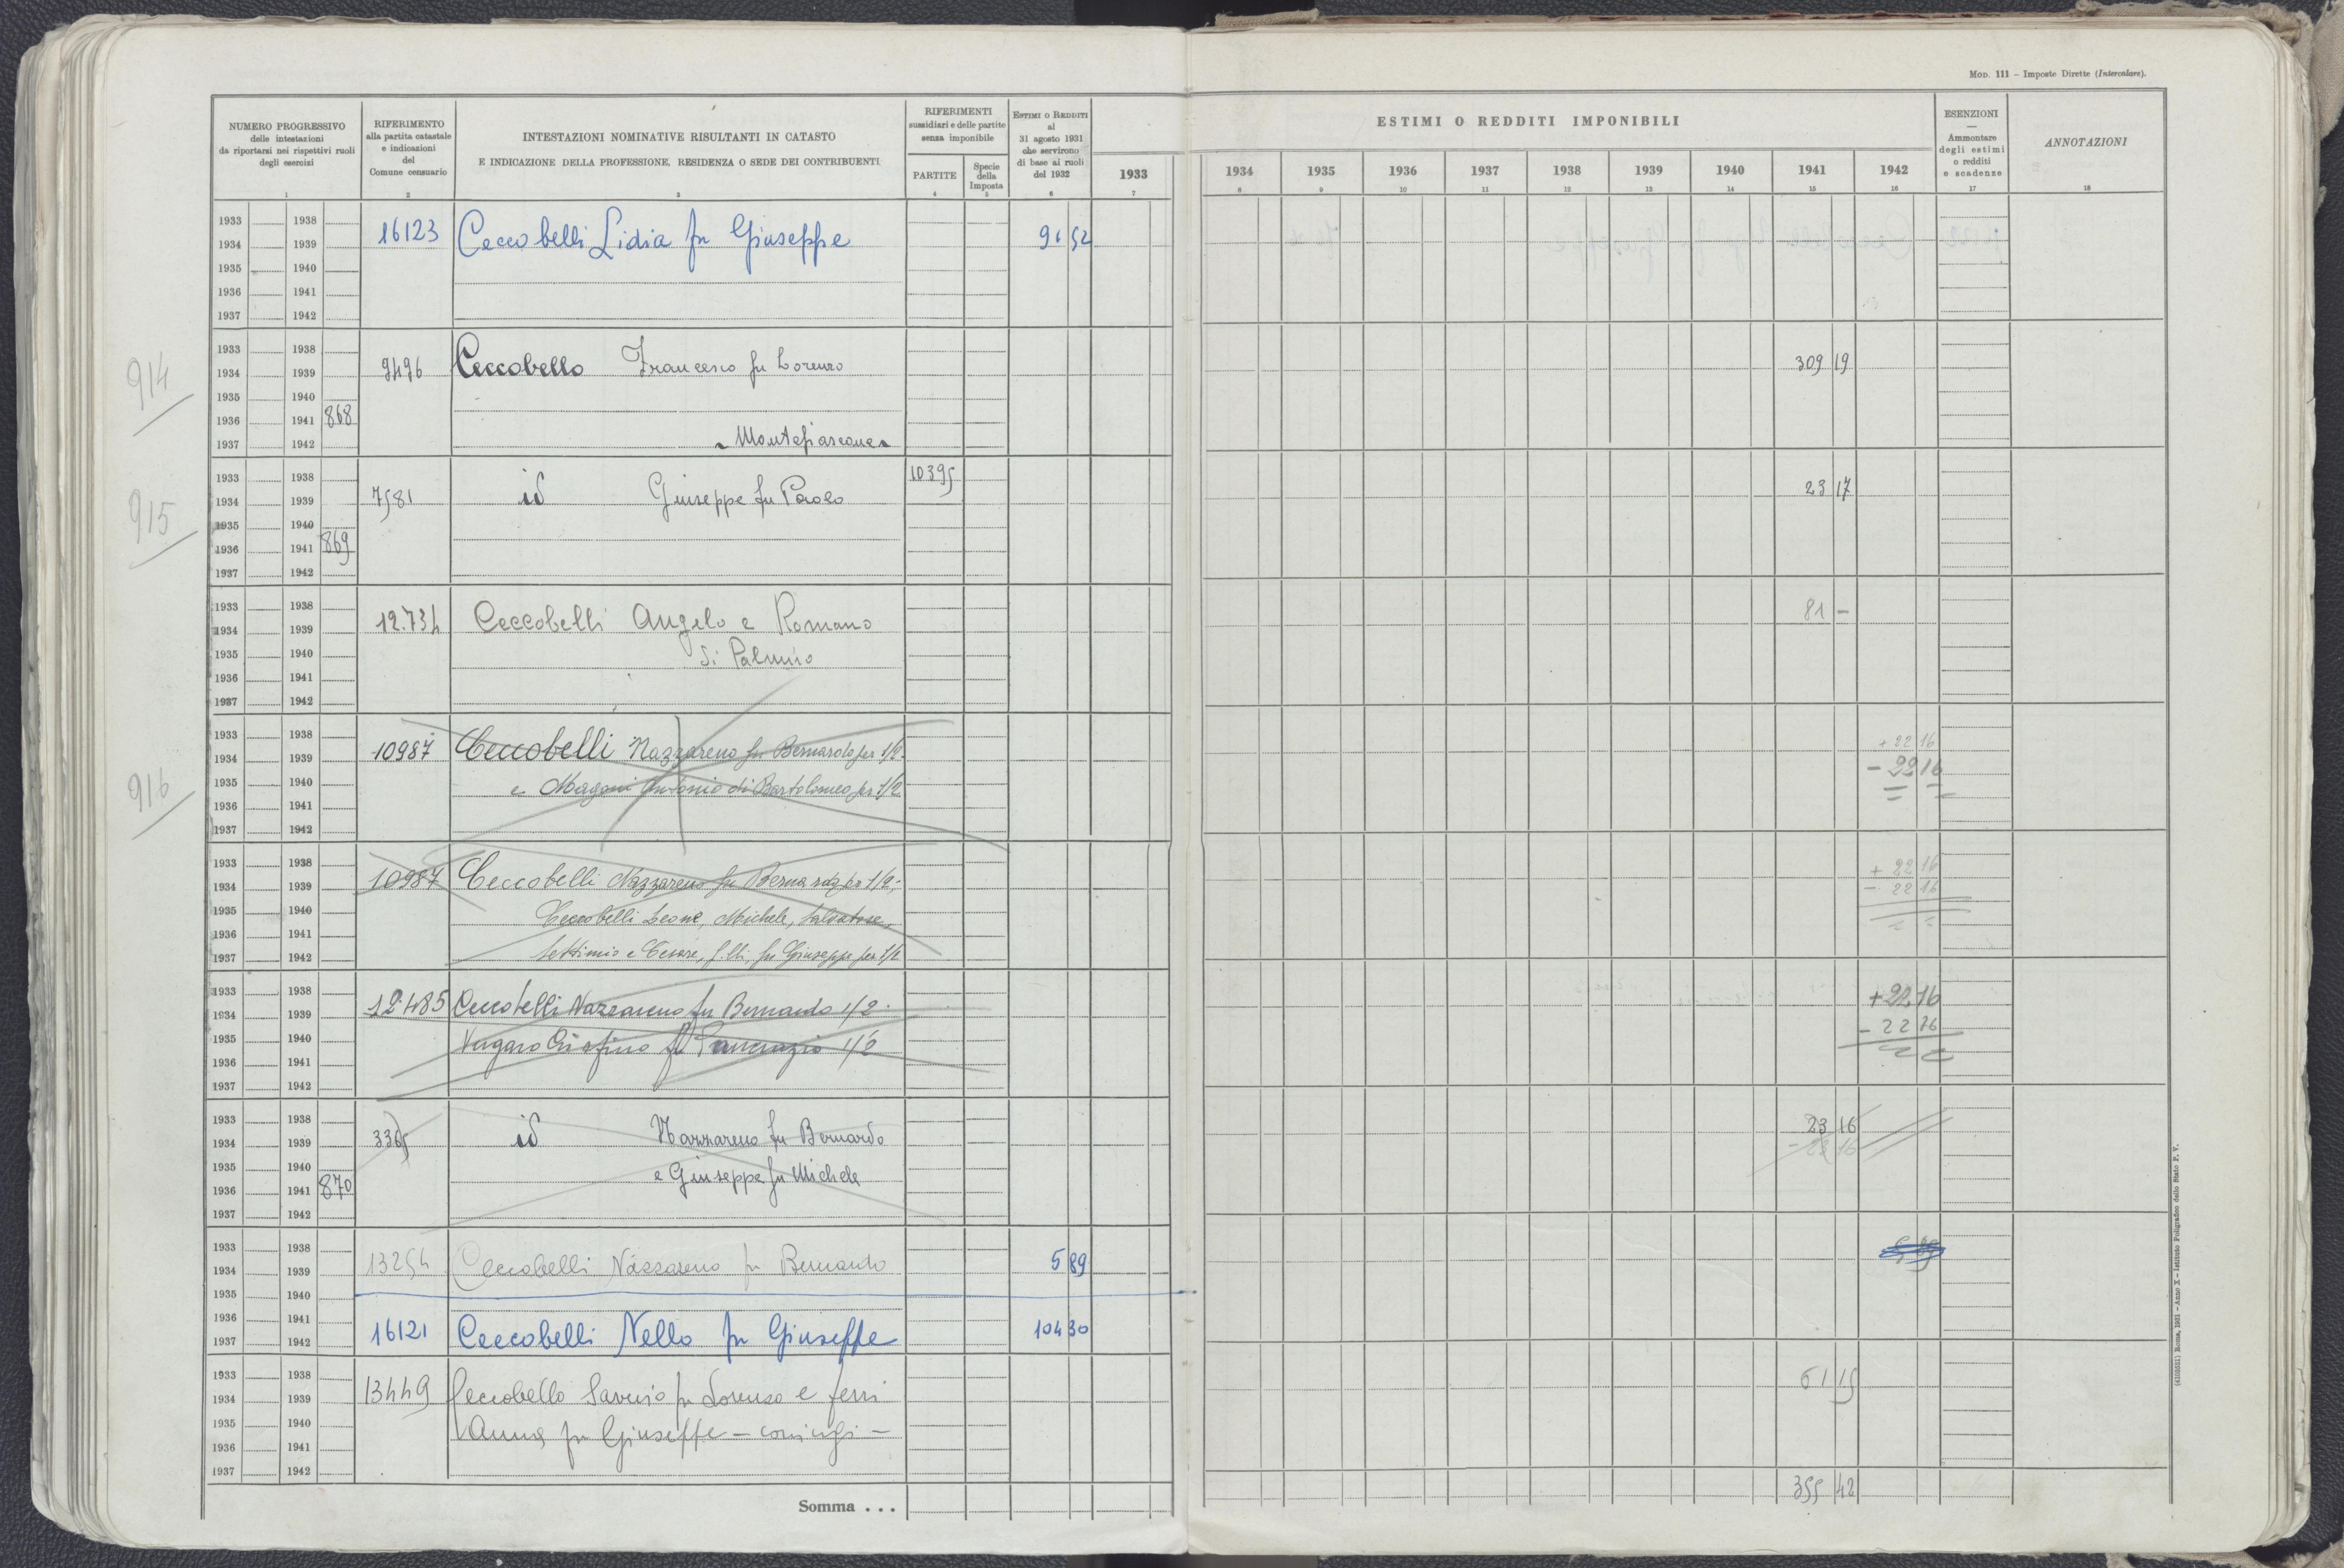 MOD. 111 – Imposte Dirette (Intercalare).
NUMERO PROGRESSIVO
delle intestazioni
da riportarsi nei rispettivi ruoli
degli esercizi
1
RIFERIMENTO
alla partita catastale
e indicazioni
del
Comune censuario
2
INTESTAZIONI NOMINATIVE RISULTANTI IN CATASTO
E INDICAZIONE DELLA PROFESSIONE, RESIDENZA O SEDE DEI CONTRIBUENTI
3
RIFERIMENTI
sussidiari e delle partite
senza imponibile
PARTITE
4
Specie
della
Imposta
5
ESTIMI O REDDITI
al
31 agosto 1931
che servirono
di base ai ruoli
del 1932
6
ESTIMI O REDDITI IMPONIBILI
1933 1934 1935 1936 1937 1938 1939 1940 1941 1942
7 8 9 10 11 12 13 14 15 16
ESENZIONI
—
Ammontare
degli estimi
o redditi
e scadenze
17
ANNOTAZIONI
18
1933 1938
1934 1939 16123 Ceccobelli Lidia fu Giuseppe 91 52
1935 1940
1936 1941
1937 1942
914
1933 1938
1934 1939 9496 Ceccobello Francesco fu Lorenzo 309 19
1935 1940
1936 1941 868
1937 1942 Montefiascone
915
1933 1938 10395
1934 1939 7581 id Giuseppe fu Paolo 23 17
1935 1940
1936 1941 869
1937 1942
1933 1938
1934 1939 12.734 Ceccobelli Angelo e Romano 81 –
1935 1940 di Palmiro
1936 1941
1937 1942
916
1933 1938 + 22 16
1934 1939 10987 Ceccobelli Nazzareno fu Bernardo per 1/2 – 22 16
1935 1940 e Magoni Antonio di Bartolomeo per 1/2
1936 1941
1937 1942
1933 1938 + 22 16
1934 1939 10987 Ceccobelli Nazzareno fu Bernardo per 1/2; – 22 16
1935 1940 Ceccobelli Leone, Michele, Salvatore,
1936 1941
1937 1942 Settimio e Cesare, f.lli, fu Giuseppe per 1/2
1933 1938 + 22 16
1934 1939 12485 Ceccobelli Nazzareno fu Bernardo 1/2 – 22 16
1935 1940 fu Pancrazio 1/2
1936 1941
1937 1942
1933 1938 23 16
1934 1939 3365 id Nazzareno fu Bernardo – 23 16
1935 1940
1936 1941 870 e Giuseppe fu Michele
1937 1942
1933 1938
1934 1939 13254 Ceccobelli Nazzareno fu Bernardo 5 89
1935 1940
1936 1941
1937 1942 16121 Ceccobelli Nello fu Giuseppe 104 30
1933 1938
1934 1939 13449 Ceccobello Saverio fu Lorenzo e Ferri 61 15
1935 1940 Anna fu Giuseppe – coniugi –
1936 1941
1937 1942
Somma . . . 355 42
(4100551) Roma, 1931 - Anno X - Istituto Poligrafico dello Stato P. V.